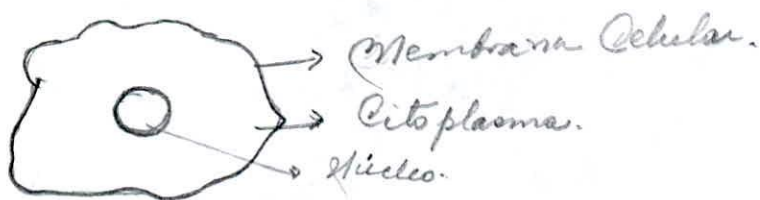 Membrana Celular.
Citoplasma.
Núcleo.